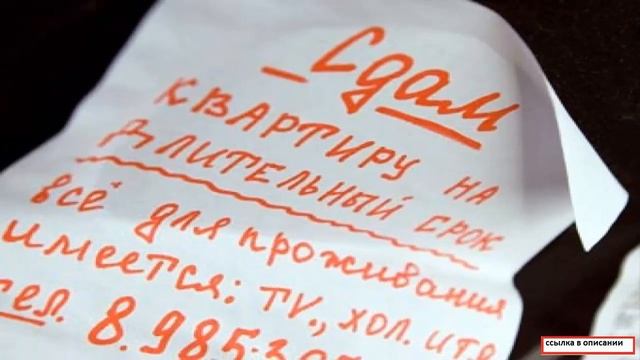 Сдам
КВАРТИРУ НА
ДЛИТЕЛЬНЫЙ СРОК
всё для проживания
имеется: TV., хол. итд
тел. 8.985.
ссылка в описании